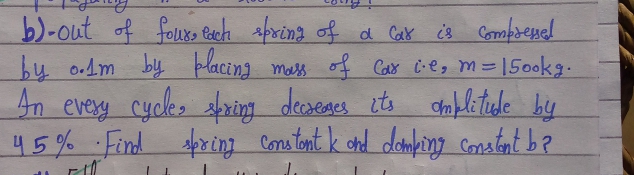 b)-out of four, each spring of a car is compressed
by 0.1m by placing mass of car i.e, m=1500kg.
In every cycle, spring decreases its amplitude by
45%. Find spring constant k and damping constant b?